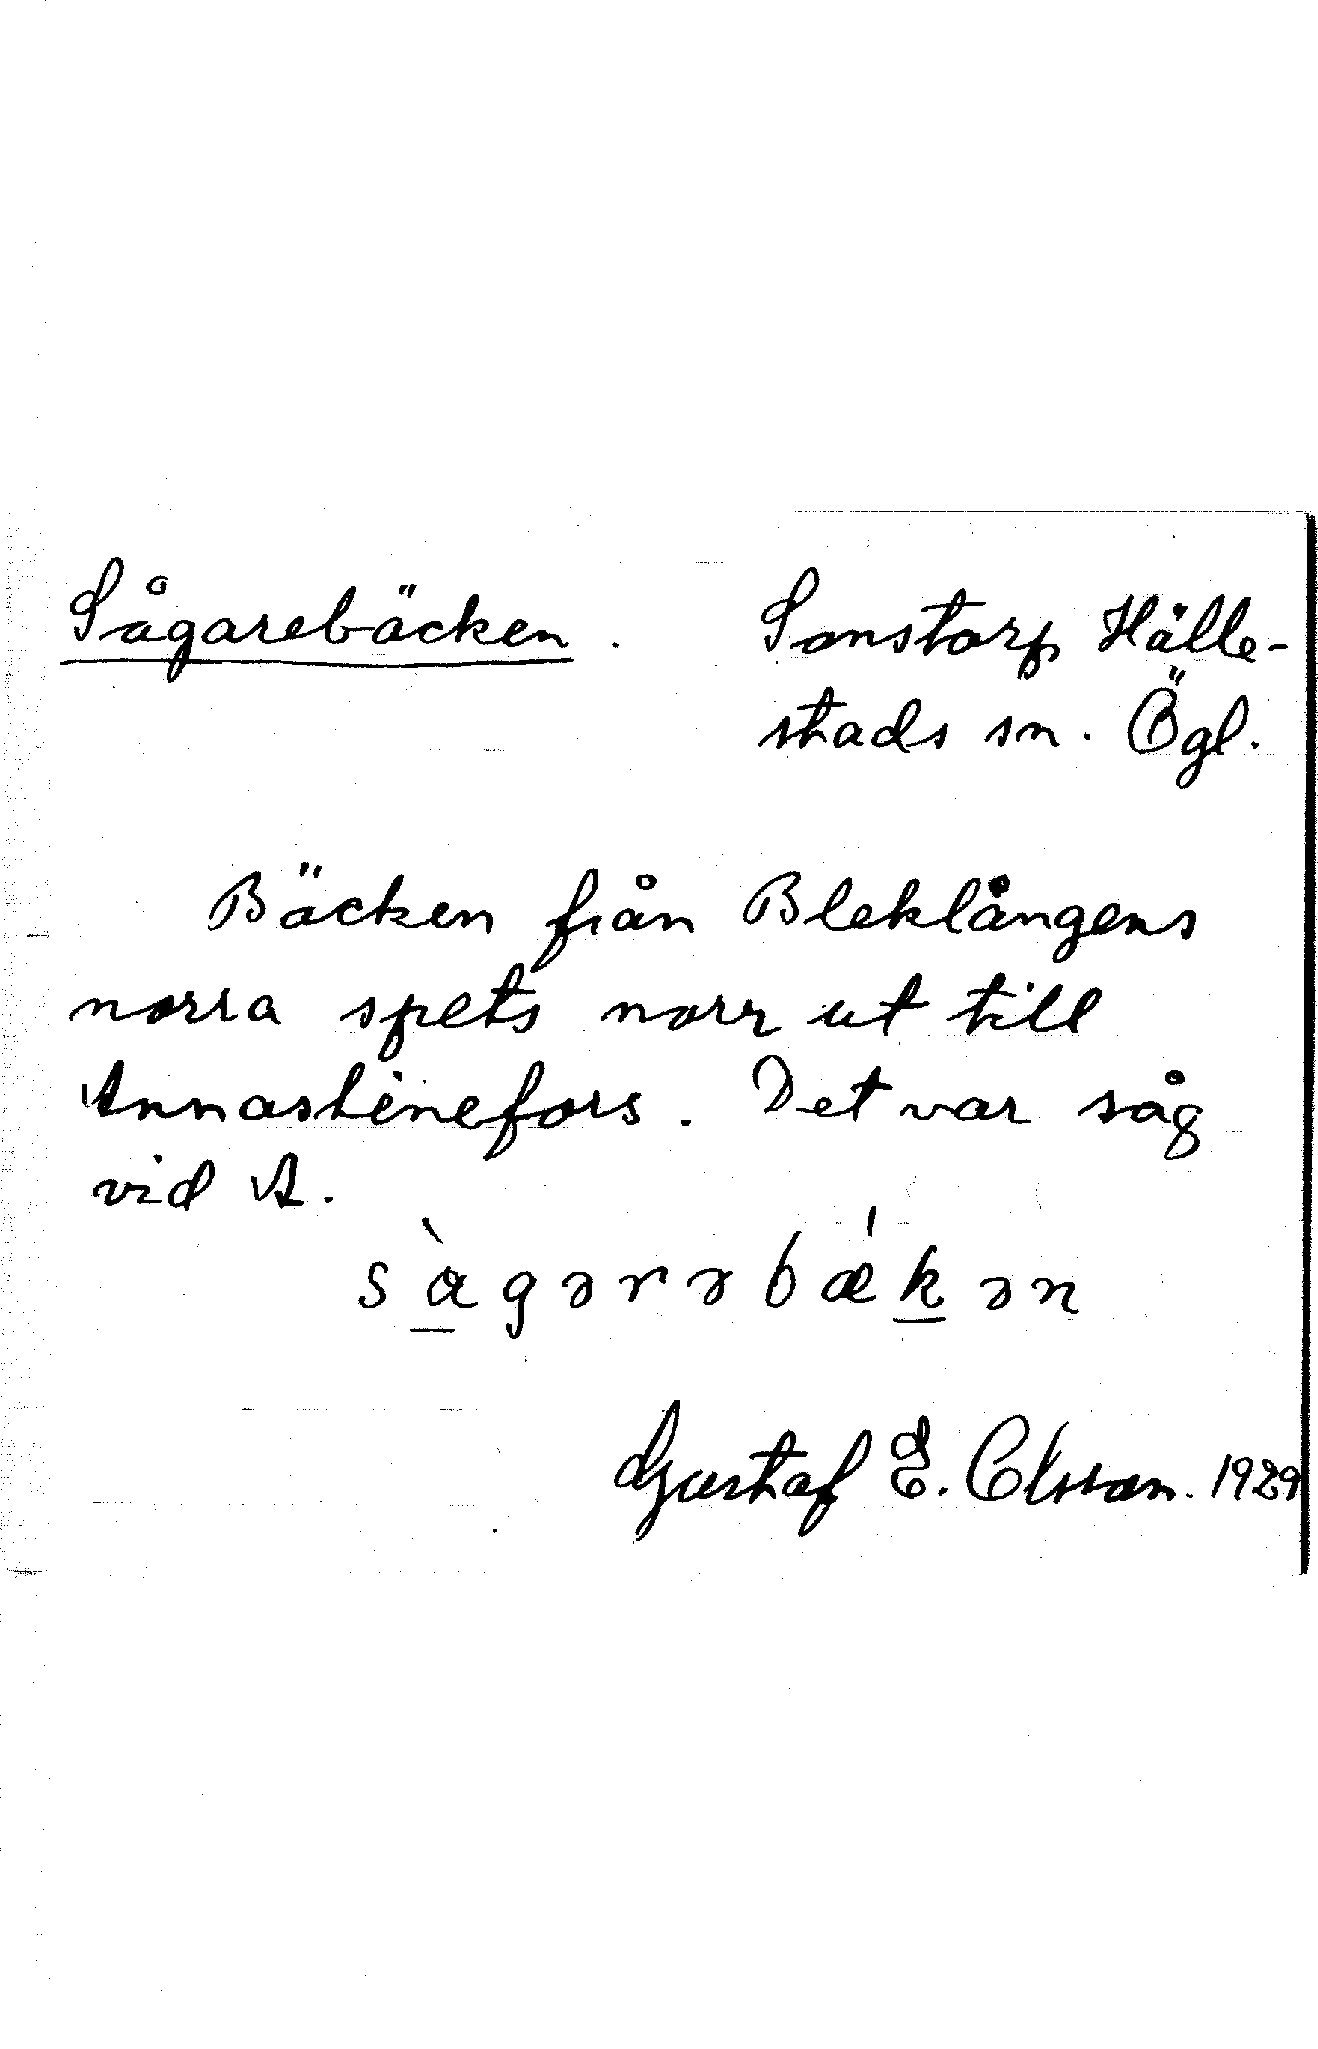 Sågarebäcken. Sonstorp Hälle-
stads sn. Ögl.
Bäcken från Bleklångens
norra spets norr ut till
Annastinefors. Det var såg
vid A.
Gustaf E. Olsson. 1929